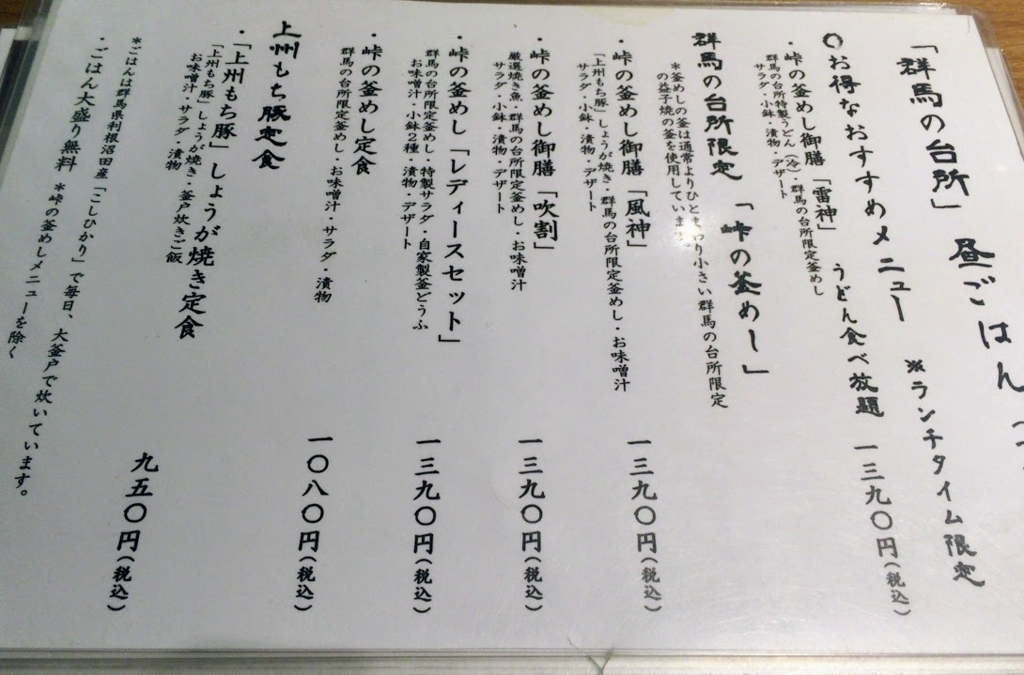 「群馬の台所」 昼ごはん
※ランチタイム限定
○お得なおすすめメニュー うどん食べ放題
・峠の釜めし御膳「雷神」 一三九〇円（税込）
群馬の台所特製うどん（冷）・群馬の台所限定釜めし
サラダ・小鉢・漬物・デザート
群馬の台所限定 「峠の釜めし」
＊釜めしの釜は通常よりひとまわり小さい群馬の台所限定
の益子焼の釜を使用しています。
・峠の釜めし御膳「風神」 一三九〇円（税込）
「上州もち豚」しょうが焼き・群馬の台所限定釜めし・お味噌汁
サラダ・小鉢・漬物・デザート
・峠の釜めし御膳「吹割」 一三九〇円（税込）
厳選焼き魚・群馬の台所限定釜めし・お味噌汁
サラダ・小鉢・漬物・デザート
・峠の釜めし「レディースセット」 一三九〇円（税込）
群馬の台所限定釜めし・特製サラダ・自家製釜どうふ
お味噌汁・小鉢２種・漬物・デザート
・峠の釜めし定食 一〇八〇円（税込）
群馬の台所限定釜めし・お味噌汁・サラダ・漬物
上州もち豚定食
・「上州もち豚」しょうが焼き定食 九五〇円（税込）
「上州もち豚」しょうが焼き・釜戸炊きご飯
お味噌汁・サラダ・漬物
＊ごはんは群馬県利根沼田産「こしひかり」で毎日、大釜戸で炊いています。
・ごはん大盛り無料 ＊峠の釜めしメニューを除く